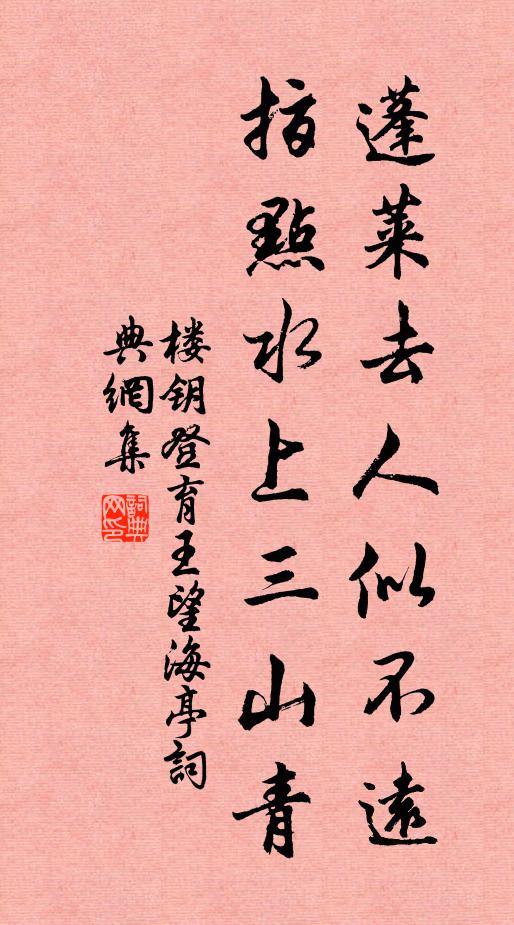 蓬萊去人似不遠
指點水上三山青
楼钥登育王望海亭詞
典網集
詞典网印